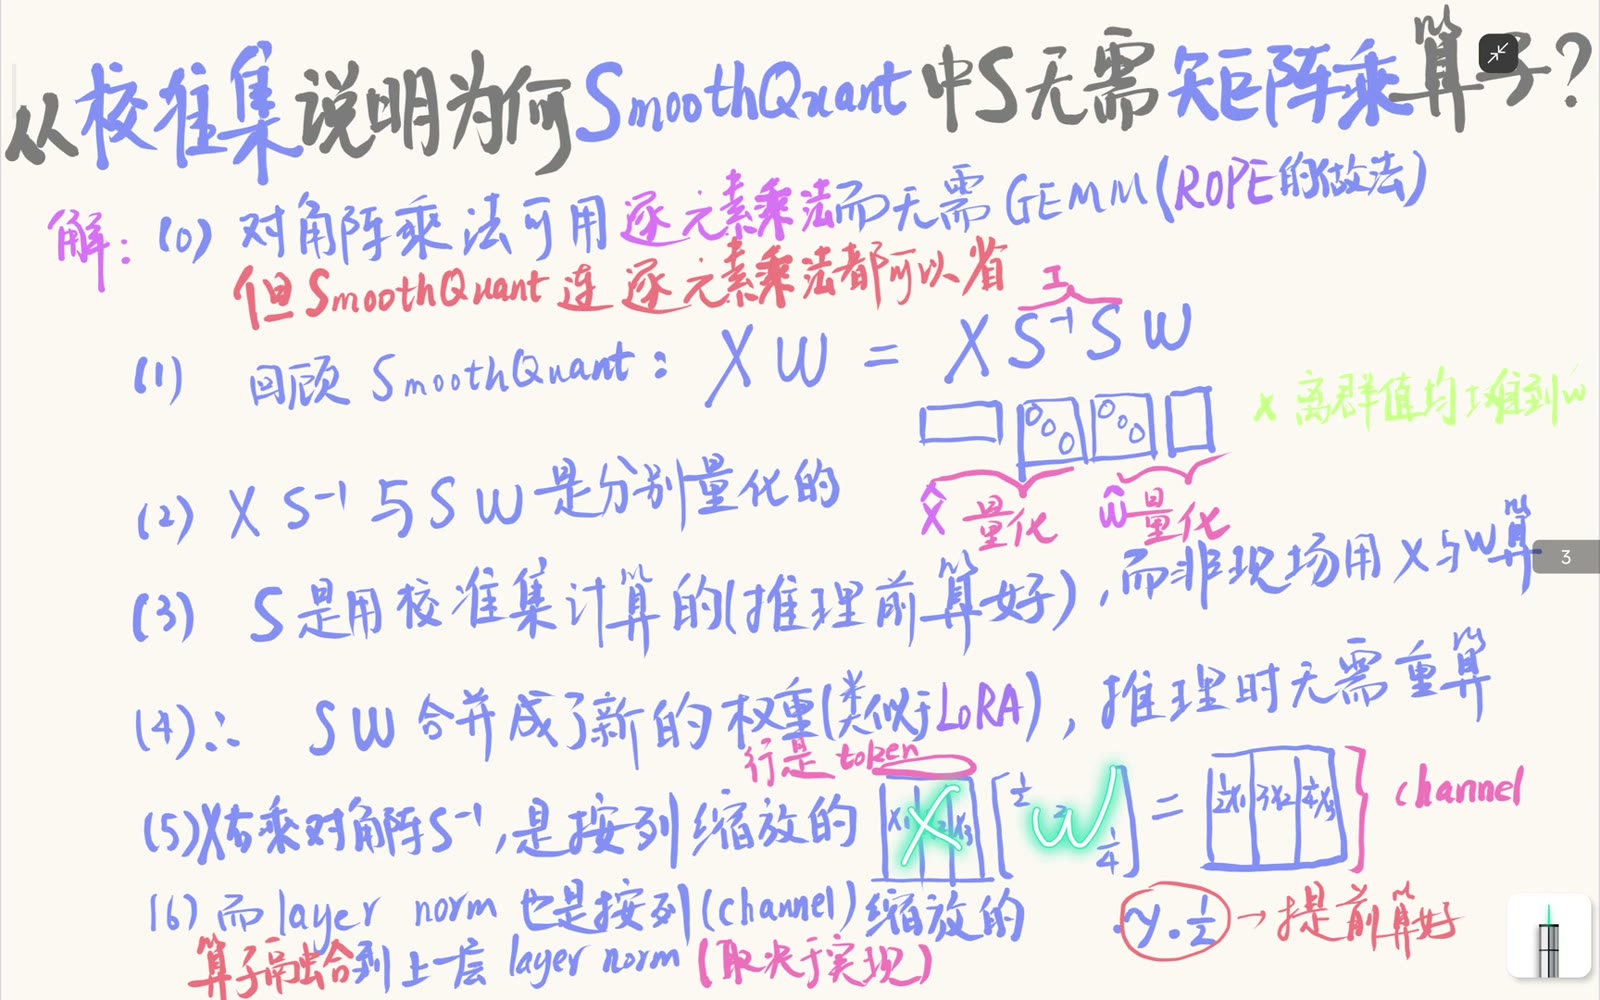 从校准集说明为何SmoothQuant中S无需矩阵乘算子?
解: (0) 对角阵乘法可用逐元素乘法而无需GEMM(ROPE的做法)
但SmoothQuant连逐元素乘法都可以省
I
(1) 回顾 SmoothQuant: XW = XS⁻¹SW
x 离群值均摊到w
(2) X S⁻¹ 与 S W 是分别量化的
X̂ 量化 Ŵ 量化
(3) S是用校准集计算的(推理前算好),而非现场用X与W算
3
(4) ∴ SW合并成了新的权重(类似于LoRA),推理时无需重算
行是 token
(5) X右乘对角阵S⁻¹,是按列缩放的 X W = channel
(6) 而layer norm也是按列(channel)缩放的
γ·½ → 提前算好
算子融合到上一层 layer norm (取决于实现)